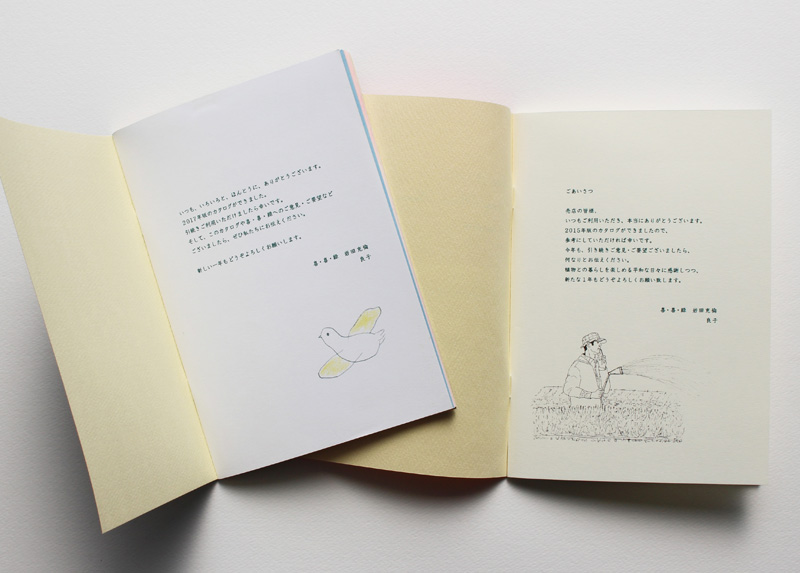 いつも、いろいろと、ほんとうに、ありがとうございます。
2017年版のカタログができました。
引続きご利用いただけましたら幸いです。
そして、このカタログや喜・喜・緑へのご意見・ご要望など
ございましたら、ぜひ私たちにお伝えください。
新しい一年もどうぞよろしくお願いします。
喜・喜・緑 岩田充倫
良子
ごあいさつ
売店の皆様、
いつもご利用いただき、本当にありがとうございます。
2015年版のカタログができましたので、
参考にしていただければ幸いです。
今年も、引き続きご意見・ご要望ございましたら、
何なりとお伝えください。
植物との暮らしを楽しめる平和な日々に感謝しつつ、
新たな1年もどうぞよろしくお願い致します。
喜・喜・緑 岩田充倫
良子